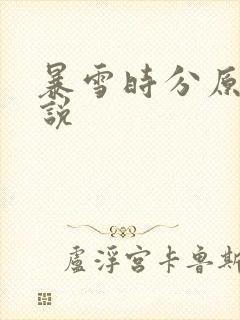 暴雪時分原
說
盧浮宮卡魯斯